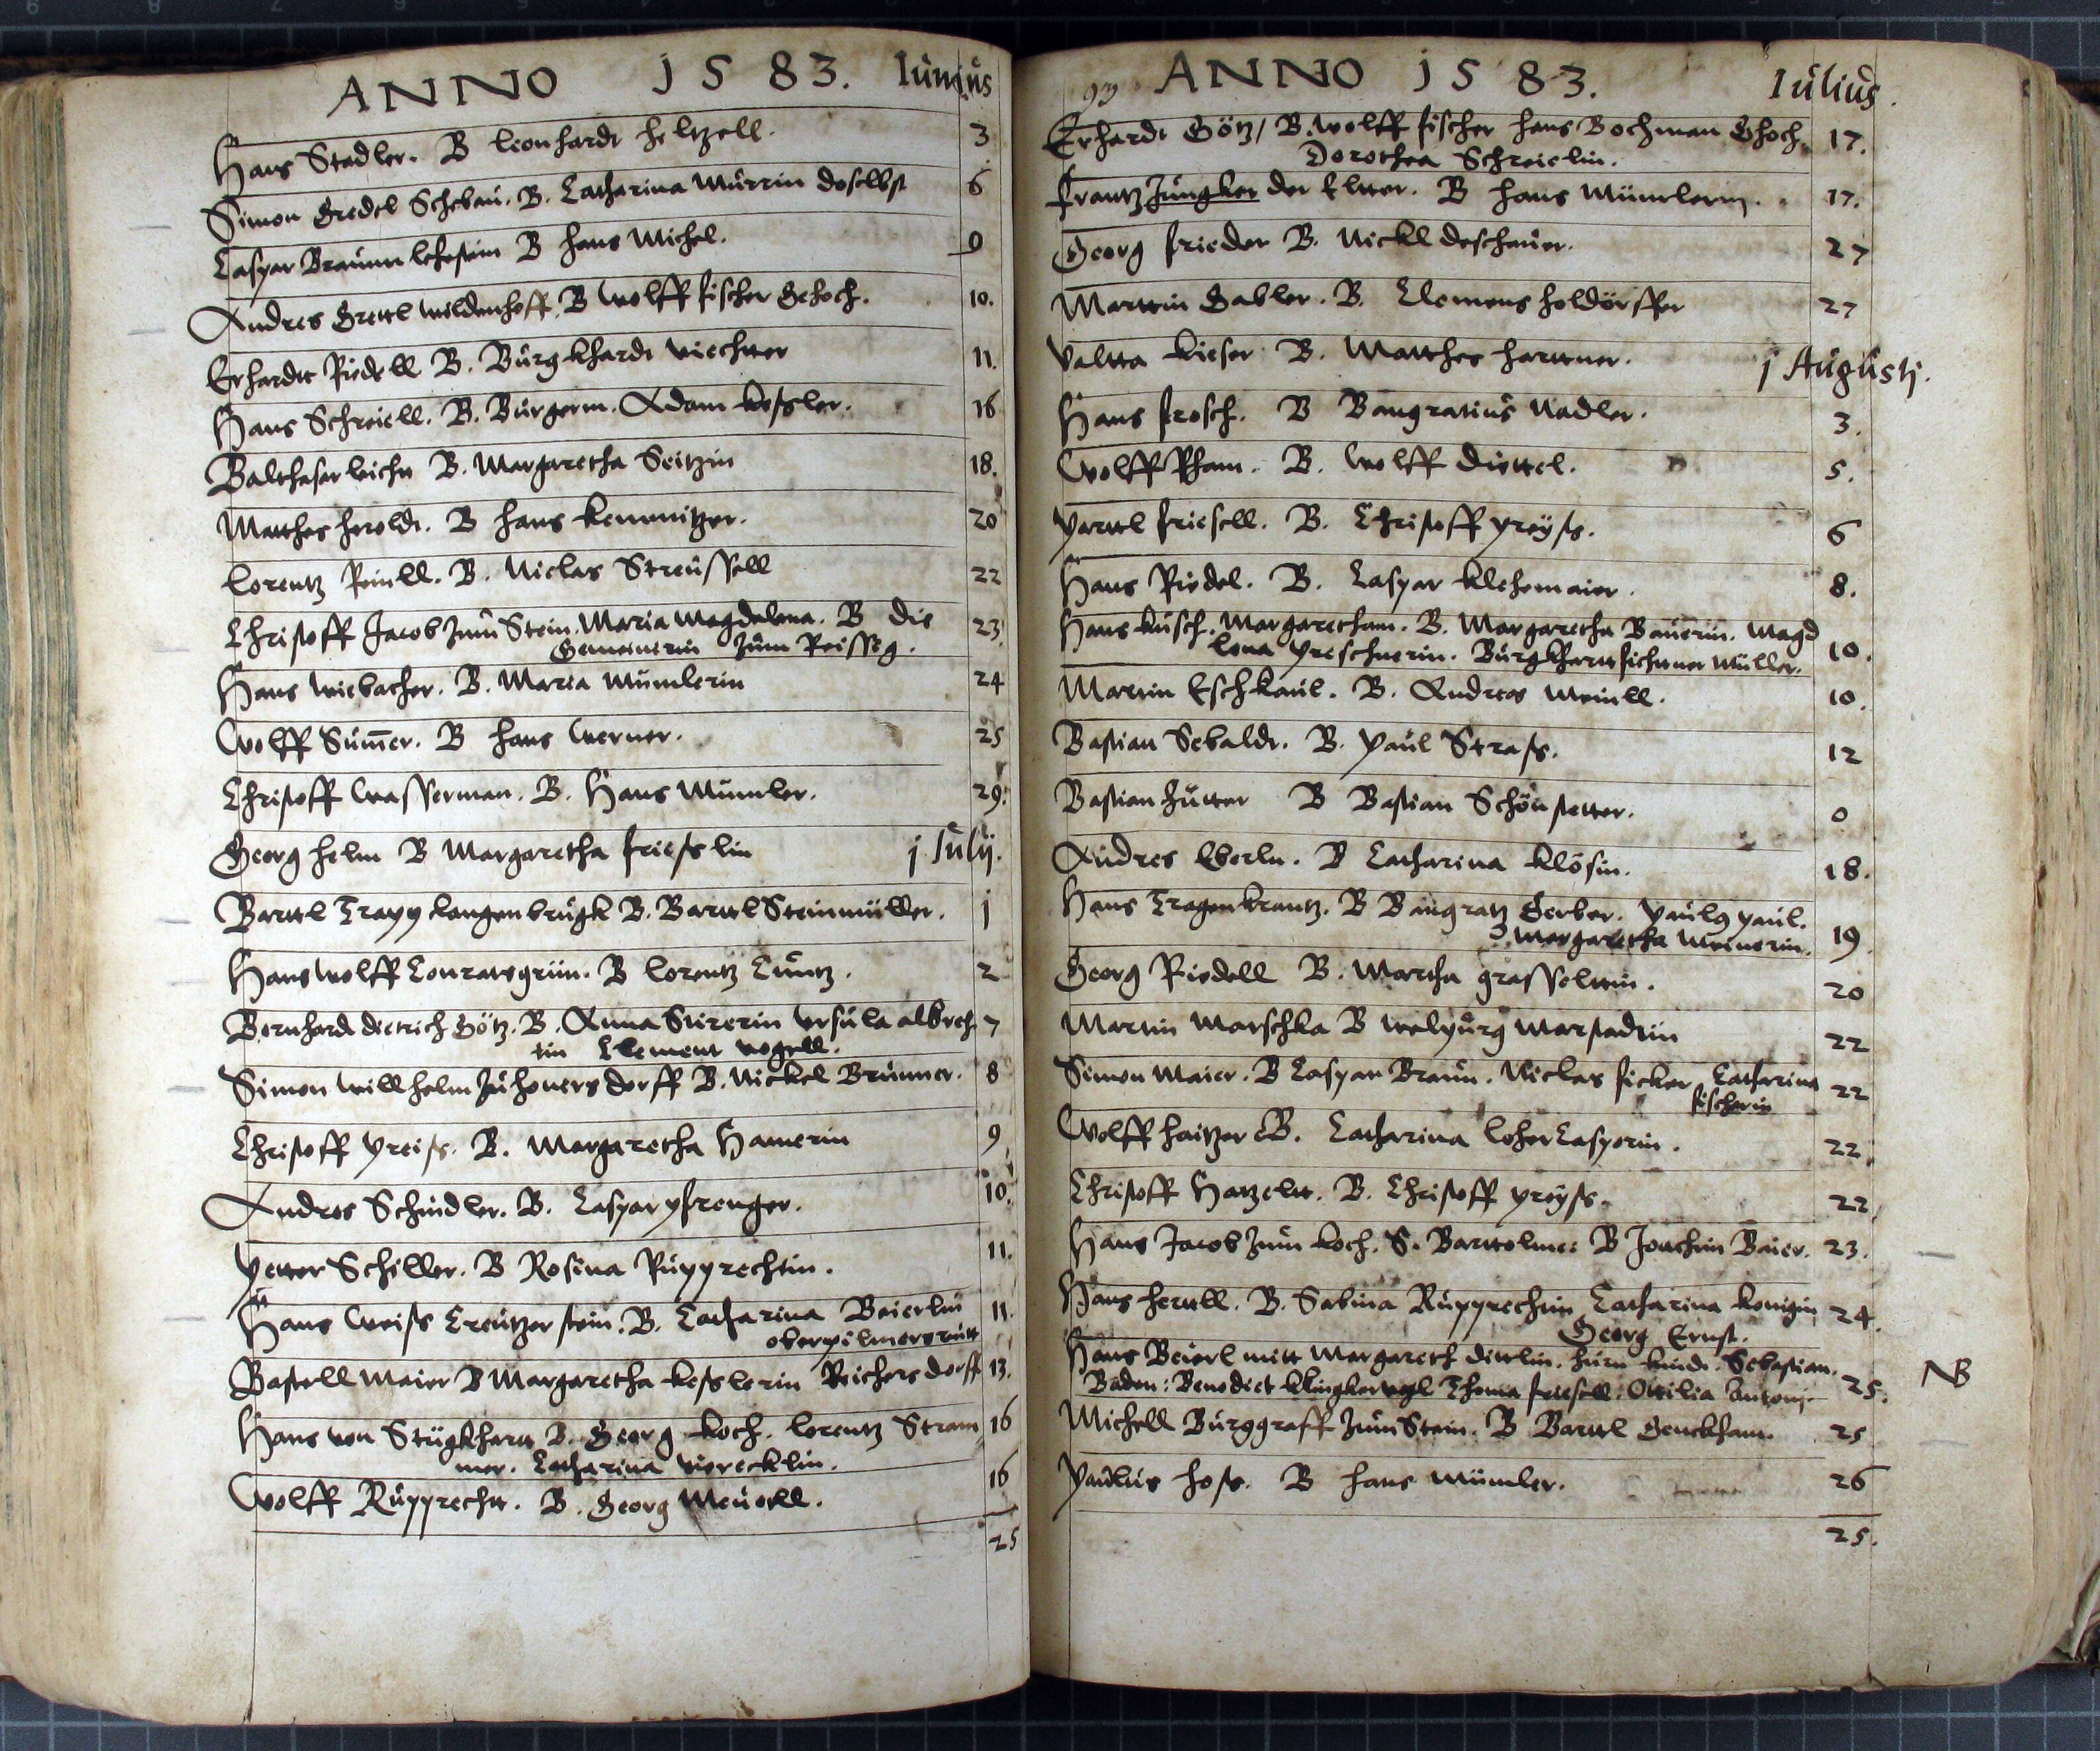 ANNO 1583. Iunius
Hans Stadler. B Leonhardt heltzell. 3
Simon Gredel Scheban. B. Catharina Murrin doselbst 6
Caspar Braunn lehestain B hans Michel. 9
Andres Grettl wildenhoff. B Wolff fischer Gehoch. 10.
Erhardt Riedell B. Burgkhardt viechtter 11.
Hans Schreiell. B. Burgerm. Adam kessler. 16
Balthasar vichn B. Margaretha Seitzin 18.
Matthes heroldt. B hans kemnitzer. 20
Lorentz Reinll. B. Niclas Streussell 22
Christoff Jacob zum Stein. Maria Magdalena. B die 23
Gemainerin zum Reisseg.
Hans wiebacher. B. Maria Mumlerin 24
Wolff Sum̄er. B hans werner. 25
Christoff wasserman. B. Hans Mumler. 29.
Georg helm B Margaretha friesslin j Julij.
Barttl Trapp langenbrugk B. Barttl Steinmüller. j
Hans Wolff Conratsgrün. B Lorentz Cuntz. 2
Bernhardt dietrich Götz. B. Anna Sürerin Ursula albrech 7
tin Clement vogell.
Simon willhelm zu houersdorff B. Nickel Brunner. 8
Christoff preiss. B. Margaretha Hamerin 9
Andres Schindler. B. Caspar pfrenger. 10.
Petter Schiller. B Rosina Rupprechtin. 11.
Hans Weiss Creutzerstein. B. Catharina Beierlin 11.
oberpilmersreutt
Bastell Maier B Margaretha kesslerin Reichersdorff 13.
Hans von Stügkhartt B. Georg koch. Lorentz Stram 16
mer. Catharina vierecklin.
Wolff Rupprechtt. B. Georg Meusell. 16
25
93 ANNO 1583. Iulius.
Erhardt Götz / B. wolff fischer hans Bochman Ghoch. 17.
Dorothea Schreielin.
frantz Jungker der Eltter. B hans Mümlerin. 17.
Georg frieder B. Nickl deschauer. 27
Marttin Gabler. B. Clemens holdörffer 27
Valtta kieser B. Matthes harttner. j Augustj.
Hans frosch. B Bangratius Nadler. 3.
Wolff Rham. B. Wolff diettel. 5.
Parttl friesell. B. Christoff preÿss. 6
Hans Riedel. B. Caspar klehemaier. 8.
Hans kusch. Margaretham. B. Margaretha Bauerin. Magd
lena preschnerin. Burgkhartt fichtner Müller. 10.
Martin Eschkaul. B. Andreas Meinll. 10.
Bastian Sebaldt. B. Paul Strass. 12
Bastian Hutter B Bastian Schönstetter. 0
Andres Eberln. B Catharina klösin. 18.
Hans Tragenkrantz. B Bangratz Gerber. Pauls paul.
Margaretha Meinerin. 19.
Georg Riedell B. Martha grasselttin. 20
Martin Matschka B walpurg Marstadtin 22
Simon Maier. B Caspar Braun. Niclas ficker Catharina 22
fischerin
Wolff haitzer B. Catharina loher Casperin. 22.
Christoff Hatzeltt. B. Christoff preÿss. 22.
Hans Jacob zum koch. S. Barttolmes B Joachim Baier. 23.
Hans herttll. B. Sabina Rupprechtin Catharina konigin 24.
Georg Ernst.
Hans Beierl mitt Margareth dittlin. hurn kindt. Sebastian.
Baden: Benedict klingkervogl Thoma friesell: Ottilia Antonj. 25. NB
Michell Burggraff zum Stein. B Barttl Genckham. 25
Paulus hoss. B hans Mümler. 26
25.